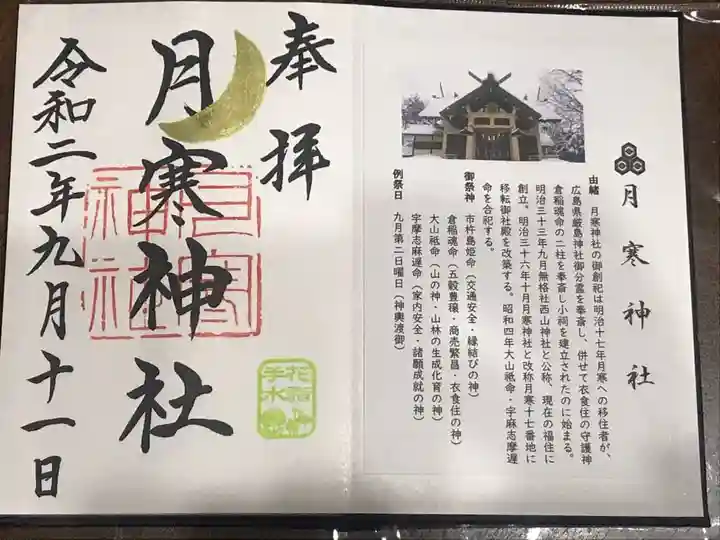 月寒神社
由緒 月寒神社の御創祀は明治十七年月寒への移住者が、
広島県厳島神社御分霊を奉斎し、併せて衣食住の守護神
倉稲魂命の二柱を奉斎し小祠を建立されたのに始まる。
明治三十三年九月無格社西山神社と公称、現在の福住に
創立。明治三十六年十月月寒神社と改称月寒十七番地に
移転御社殿を改築する。昭和四年大山祗命・宇麻志摩遅
命を合祀する。
御祭神 市杵島姫命（交通安全・縁結びの神）
倉稲魂命（五穀豊穣・商売繁昌・衣食住の神）
大山祗命（山の神・山林の生成化育の神）
宇摩志麻遅命（家内安全・諸願成就の神）
例祭日 九月第二日曜日（神輿渡御）
奉拝
月寒神社
月寒
神社
令和二年九月十一日